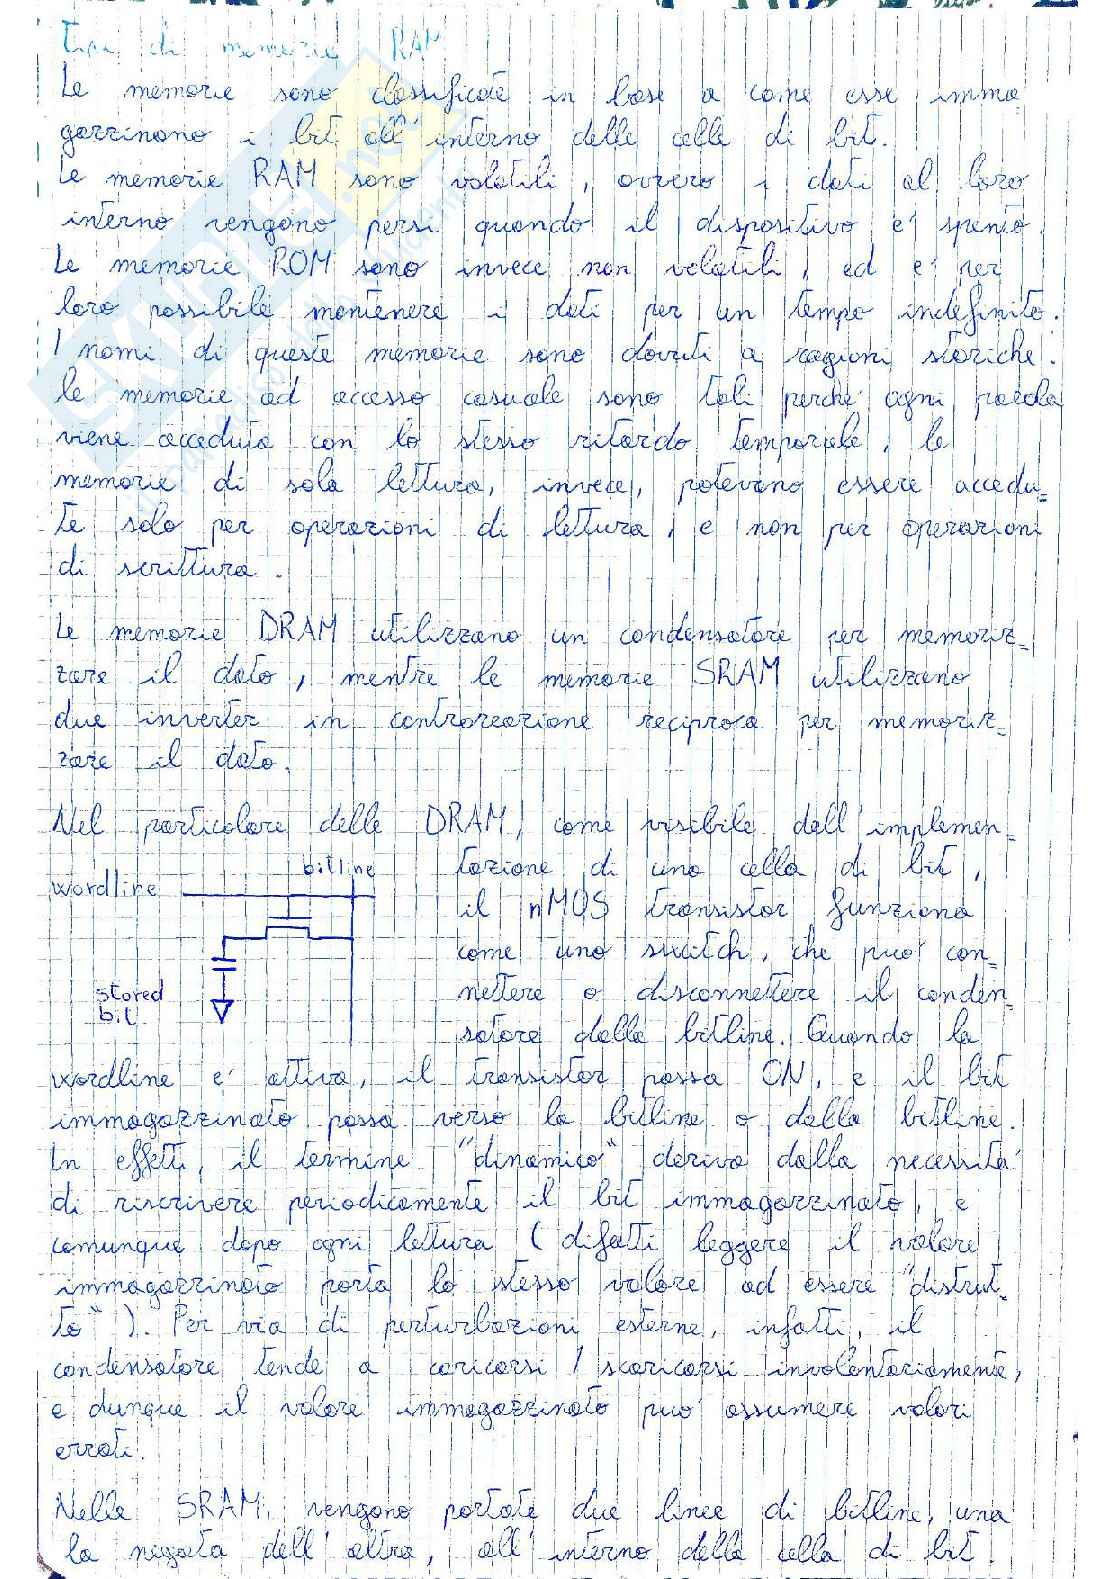 Tipi di memorie RAM
Le memorie sono classificate in base a come esse imma
gazzinano i bit all'interno delle celle di bit.
Le memorie RAM sono volatili, ovvero i dati al loro
interno vengono persi quando il dispositivo e' spento.
Le memorie ROM sono invece non volatili, ed e' per
loro possibile mantenere i dati per un tempo indefinito.
I nomi di queste memorie sono dovuti a ragioni storiche.
le memorie ad accesso casuale sono tali perche' ogni parola
viene acceduta con lo stesso ritardo temporale, le
memorie di sola lettura, invece, potevano essere accedu=
te solo per operazioni di lettura, e non per operazioni
di scrittura.
Le memorie DRAM utilizzano un condensatore per memoriz=
zare il dato, mentre le memorie SRAM utilizzano
due inverter in controreazione reciproca per memoriz=
zare il dato.
Nel particolare delle DRAM, come visibile dall'implemen=
tazione di una cella di bit,
il nMOS transistor funziona
come uno switch, che puo' con=
nettere o disconnettere il conden=
satore dalla bitline. Quando la
wordline
bitline
stored
bit
wordline e' attiva, il transistor passa ON, e il bit
immagazzinato passa verso la bitline o dalla bitline.
In effetti, il termine "dinamico" deriva dalla necessita'
di riscrivere periodicamente il bit immagazzinato, e
comunque dopo ogni lettura (difatti leggere il valore
immagazzinato porta lo stesso valore ad essere "distrut=
to"). Per via di perturbazioni esterne, infatti, il
condensatore tende a caricarsi / scaricarsi involontariamente,
e dunque il valore immagazzinato puo' assumere valori
errati.
Nelle SRAM, vengono portate due linee di bitline, una
la negata dell'altra, all'interno della cella di bit.